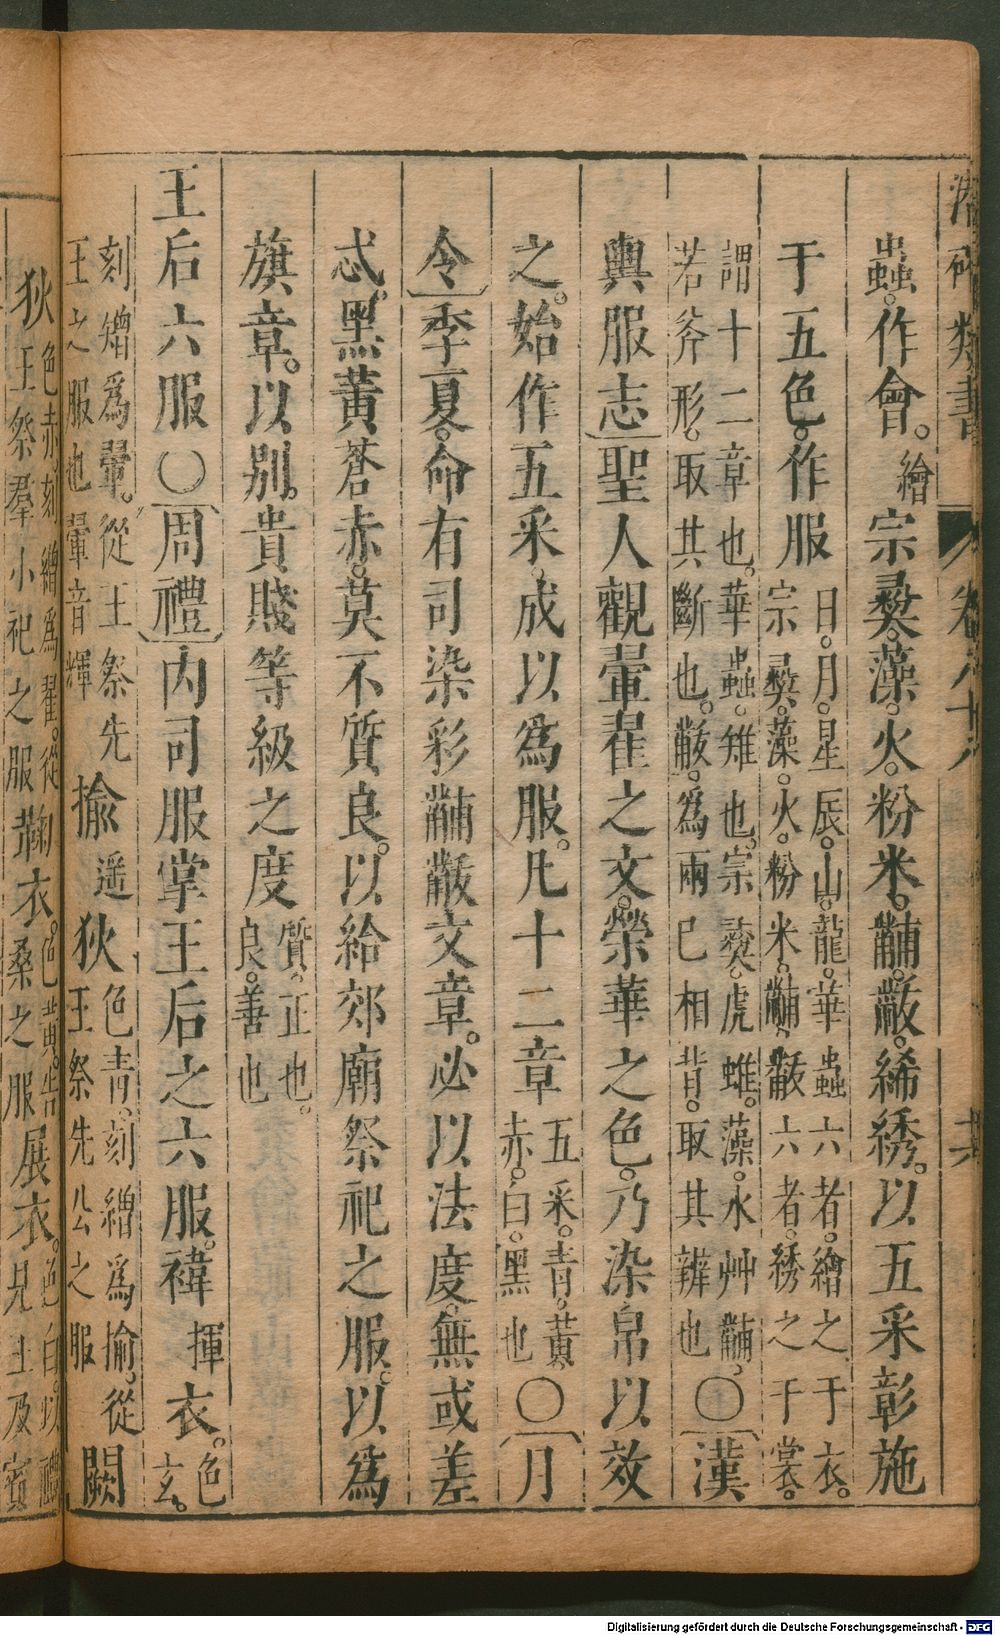 類書 卷
蟲。作會。繪宗彝。藻。火。粉米。黼。黻。絺綉。以五采彰施
于五色。作服日。月。星辰。山。龍。華蟲六者。繪之于衣。宗彝。藻。火。粉米。黼。黻六者。綉之于裳。
謂十二章也。華蟲。雉也。宗彝。虎蜼。藻。水艸。黼。若斧形。取其斷也。黻。爲兩已相背。取其辨也〇〔漢
輿服志〕聖人觀翬翟之文。榮華之色。乃染帛以效
之。始作五采。成以爲服。凡十二章五采。青。黃。赤。白。黑也〇〔月
令〕季夏。命有司染彩黼黻文章。必以法度。無或差
忒。黑黃蒼赤。莫不質良。以給郊廟祭祀之服。以爲
旗章。以別。貴賤等級之度質。正也。良。善也
王后六服〇〔周禮〕內司服掌王后之六服。褘揮衣。色玄。
刻繒爲翬。從王祭先王之服也翬音輝揄遥狄色青。刻繒爲揄。從王祭先公之服闕
狄色赤。刻繒爲翟。從王祭羣小祀之服鞠衣。色黃。告桑之服展衣。色白。以禮見王及賓
Digitalisierung gefördert durch die Deutsche Forschungsgemeinschaft - DFG